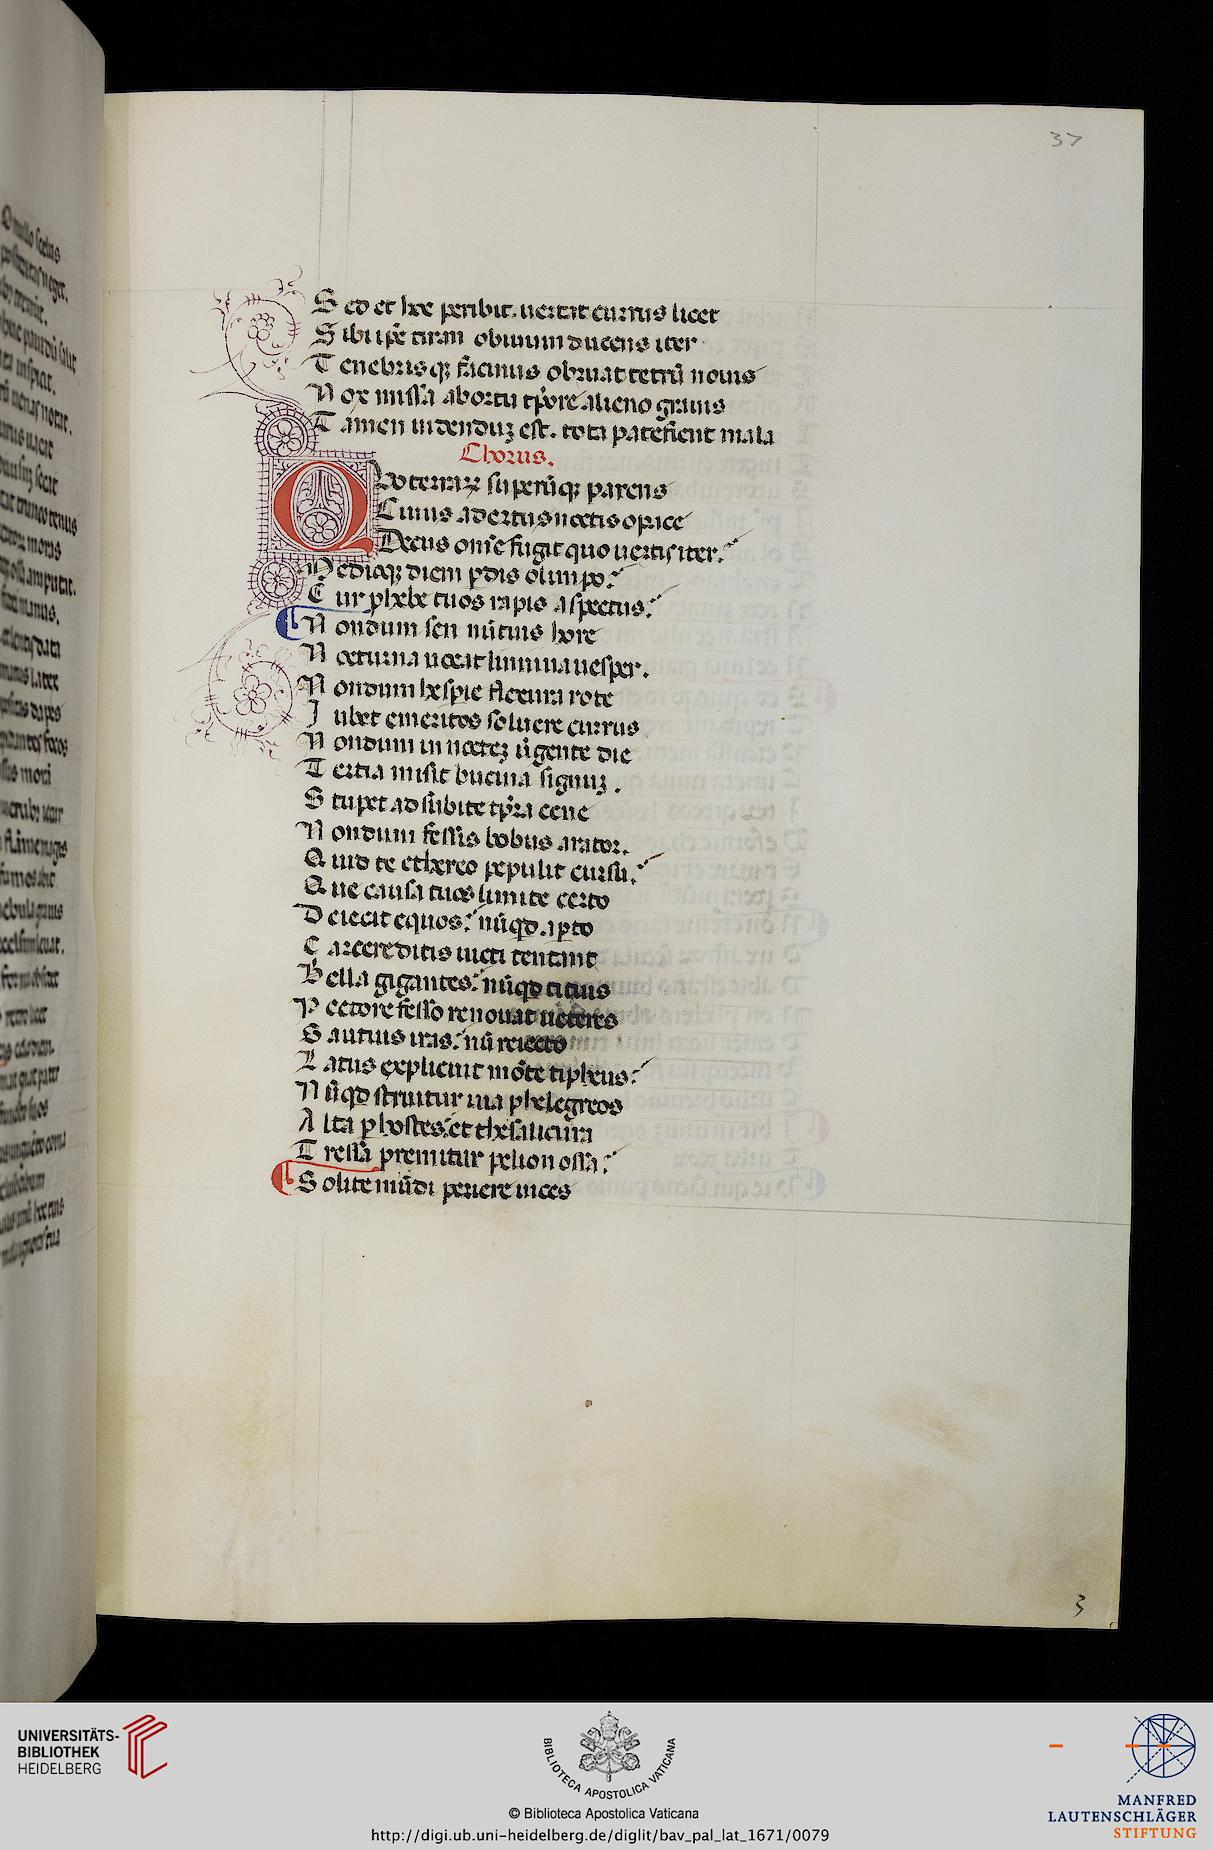 37
Sed et hoc peribit. uertat currus licet
Sibi ip̄e titan obuium ducens iter
Tenebrisqꝫ facinus obruat tetrū nouis
Nox missa ab ortu tp̄ore alieno grauis
Tamen uidenduꝫ est. tota patefient mala
Chorus.
Quo terraꝝ superūqꝫ parens
Cuius ad ortus noctis opace
Decus om̄e fugit quo uertis iter.
Medioqꝫ diem ꝑdis olimpo.
Cur phebe tuos rapis aspectus.
Nondum seri nūtius hore
Nocturna uocat lumina uesper.
Nondum hesꝑie flexura rote
Iubet emeritos soluere currus
Nondum in nocteꝫ uergente die
Tertia misit bucina signuꝫ.
Stupet ad subite tp̄ra cene
Nondum fessis bobus arator.
Quid te ethereo pepulit cursu.
Que causa tuos limite certo
Deiecit equos. nūqd aperto
Carcere ditis uicti tentant
Bella gigantes. nūqd titius
Pectore fesso renouat ueteres
Saucius iras. nū reiecto
Latus explicuit mōte tipheus.
Nūqd struitur uia phelegreos
Alta ꝑ hostes. et thesalicum
Tressa premitur pelion ossa.
Solite mūdi periere uices
3
UNIVERSITÄTS-
BIBLIOTHEK
HEIDELBERG
BIBLIOTECA APOSTOLICA VATICANA
© Biblioteca Apostolica Vaticana
http://digi.ub.uni-heidelberg.de/diglit/bav_pal_lat_1671/0079
MANFRED
LAUTENSCHLÄGER
STIFTUNG